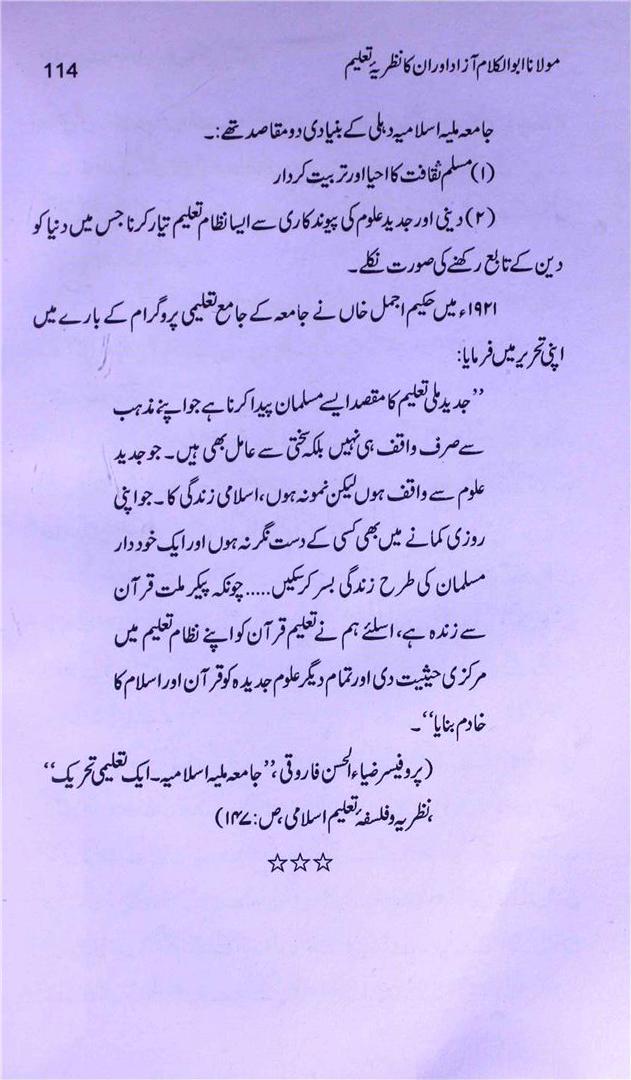 مولانا ابوالکلام آزاد اور ان کا نظریۂ تعلیم
114
جامعہ ملیہ اسلامیہ دہلی کے بنیادی دو مقاصد تھے:۔
(۱) مسلم ثقافت کا احیا اور تربیت کردار
(۲) دینی اور جدید علوم کی پیوند کاری سے ایسا نظام تعلیم تیار کرنا جس میں دنیا کو
دین کے تابع رکھنے کی صورت نکلے۔
۱۹۲۱ء میں حکیم اجمل خاں نے جامعہ کے جامع تعلیمی پروگرام کے بارے میں
اپنی تحریر میں فرمایا:
”جدید ملی تعلیم کا مقصد ایسے مسلمان پیدا کرنا ہے جو اپنے مذہب
سے صرف واقف ہی نہیں بلکہ سختی سے عامل بھی ہیں۔ جو جدید
علوم سے واقف ہوں لیکن نمونہ ہوں، اسلامی زندگی کا۔ جو اپنی
روزی کمانے میں بھی کسی کے دست نگر نہ ہوں اور ایک خوددار
مسلمان کی طرح زندگی بسر کر سکیں..... چونکہ پیکر ملت قرآن
سے زندہ ہے، اسلئے ہم نے تعلیم قرآن کو اپنے نظام تعلیم میں
مرکزی حیثیت دی اور تمام دیگر علوم جدیدہ کو قرآن اور اسلام کا
خادم بنایا“۔
(پروفیسر ضیاء الحسن فاروقی، ”جامعہ ملیہ اسلامیہ۔ ایک تعلیمی تحریک“
،نظریہ و فلسفۂ تعلیم اسلامی، ص: ۱۴۷)
☆☆☆